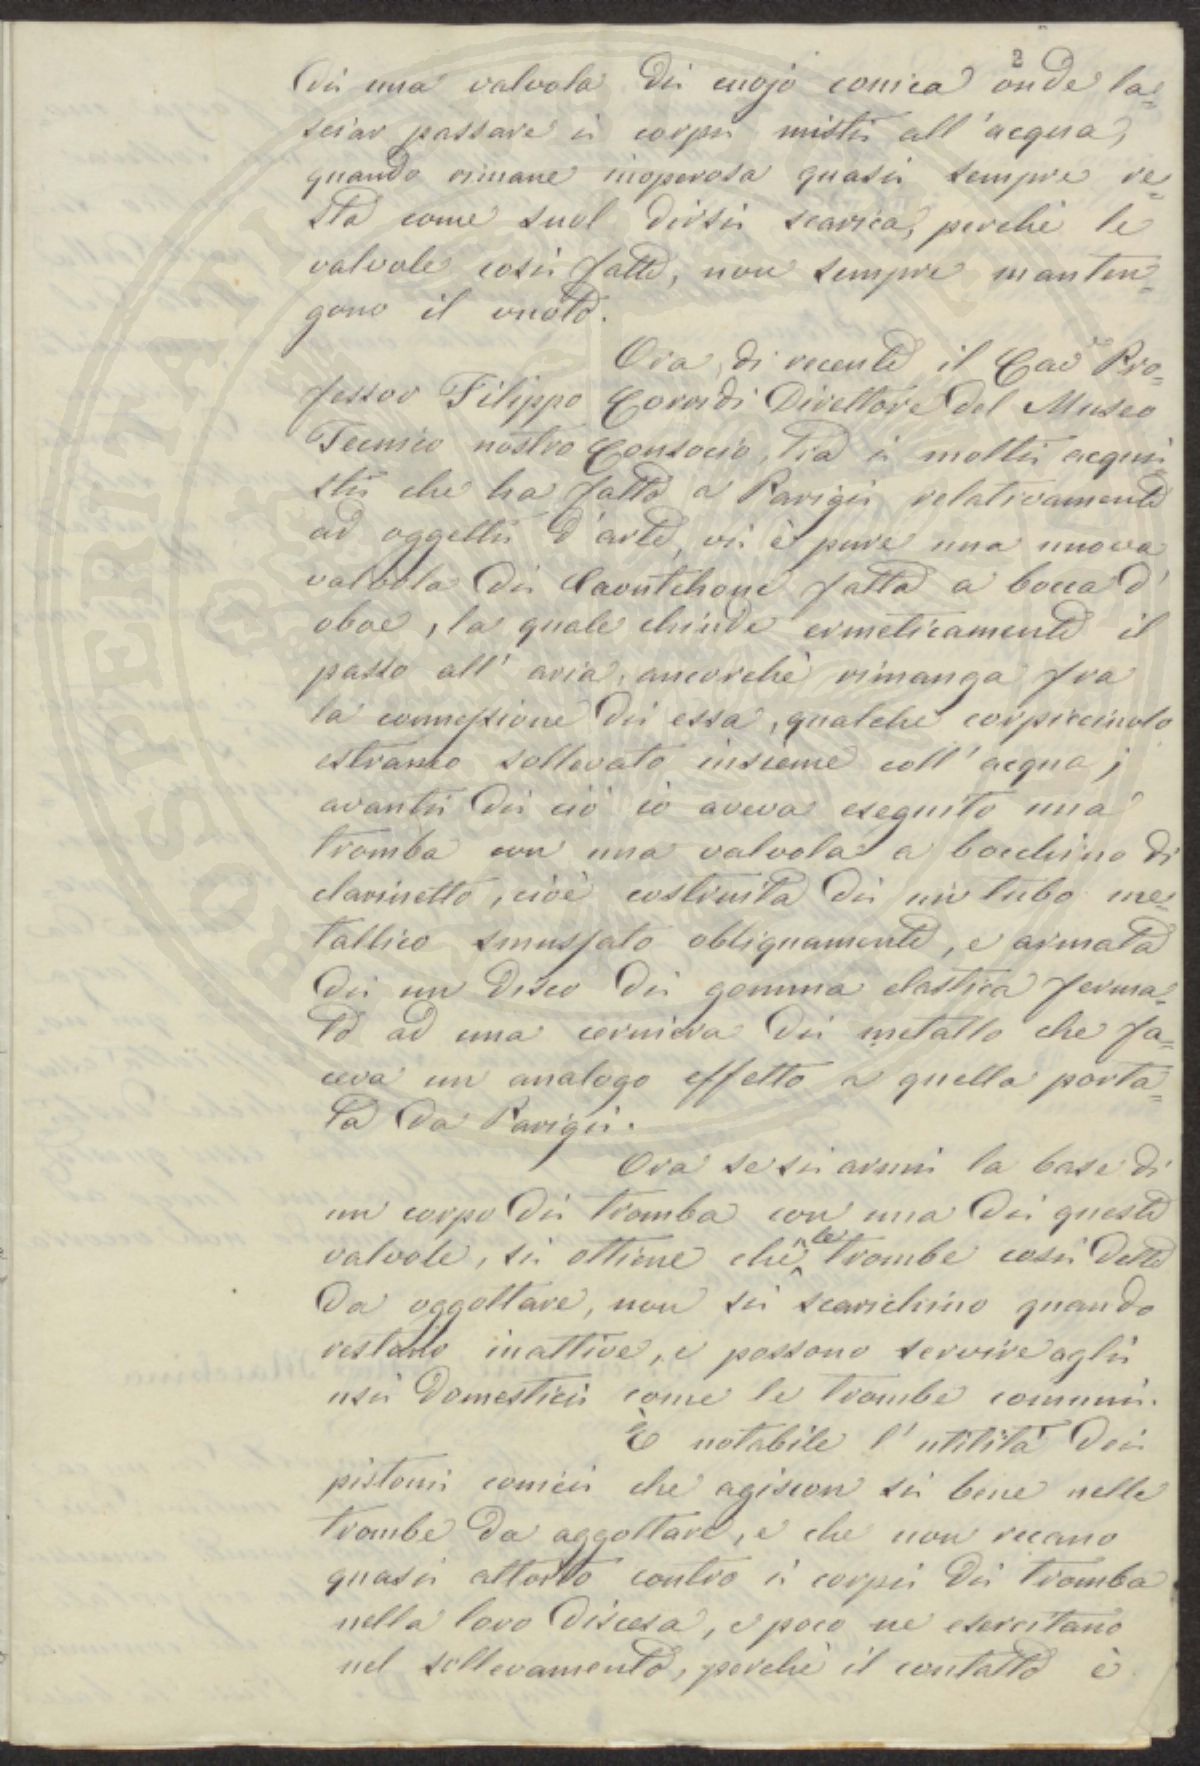 2
di una valvola di cuojo conica onde la=
sciar passare i corpi misti all'acqua,
quando rimane inoperosa quasi sempre re=
sta come suol dirsi scarica, perchè le
valvole così fatte, non sempre manten=
gono il vuoto.
Ora, di recente il Cav.e Pro=
fessor Filippo Corridi Direttore del Museo
Tecnico nostro Consocio, tra i molti acqui=
sti che ha fatto a Parigi relativamente
ad oggetti d'arte, vi è pure una nuova
valvola di Caoutchouc fatta a bocca d'
oboe, la quale chiude ermeticamente il
passo all'aria, ancorchè rimanga fra
la connessione di essa, qualche corpicciuolo
estraneo sollevato insieme coll'acqua;
avanti di ciò io aveva eseguito una
tromba con una valvola a bocchino di
clarinetto, cioè costruita di un tubo me=
tallico smussato obliquamente, e armata
di un disco di gomma elastica ferma=
to ad una cerniera di metallo che fa=
ceva un analogo effetto a quella porta=
ta da Parigi.
Ora se si armi la base di
un corpo di tromba con una di queste
valvole, si ottiene che le trombe così dette
da aggottare, non si scarichino quando
restano inattive, e possono servire agli
usi domestici come le trombe comuni.
È notabile l'utilità dei
pistoni conici che agiscon sì bene nelle
trombe da aggottare, e che non recano
quasi attorto contro i corpi di tromba
nella loro discesa, e poco ne esercitano
nel sollevamento, perchè il contatto è
OSPERITATI